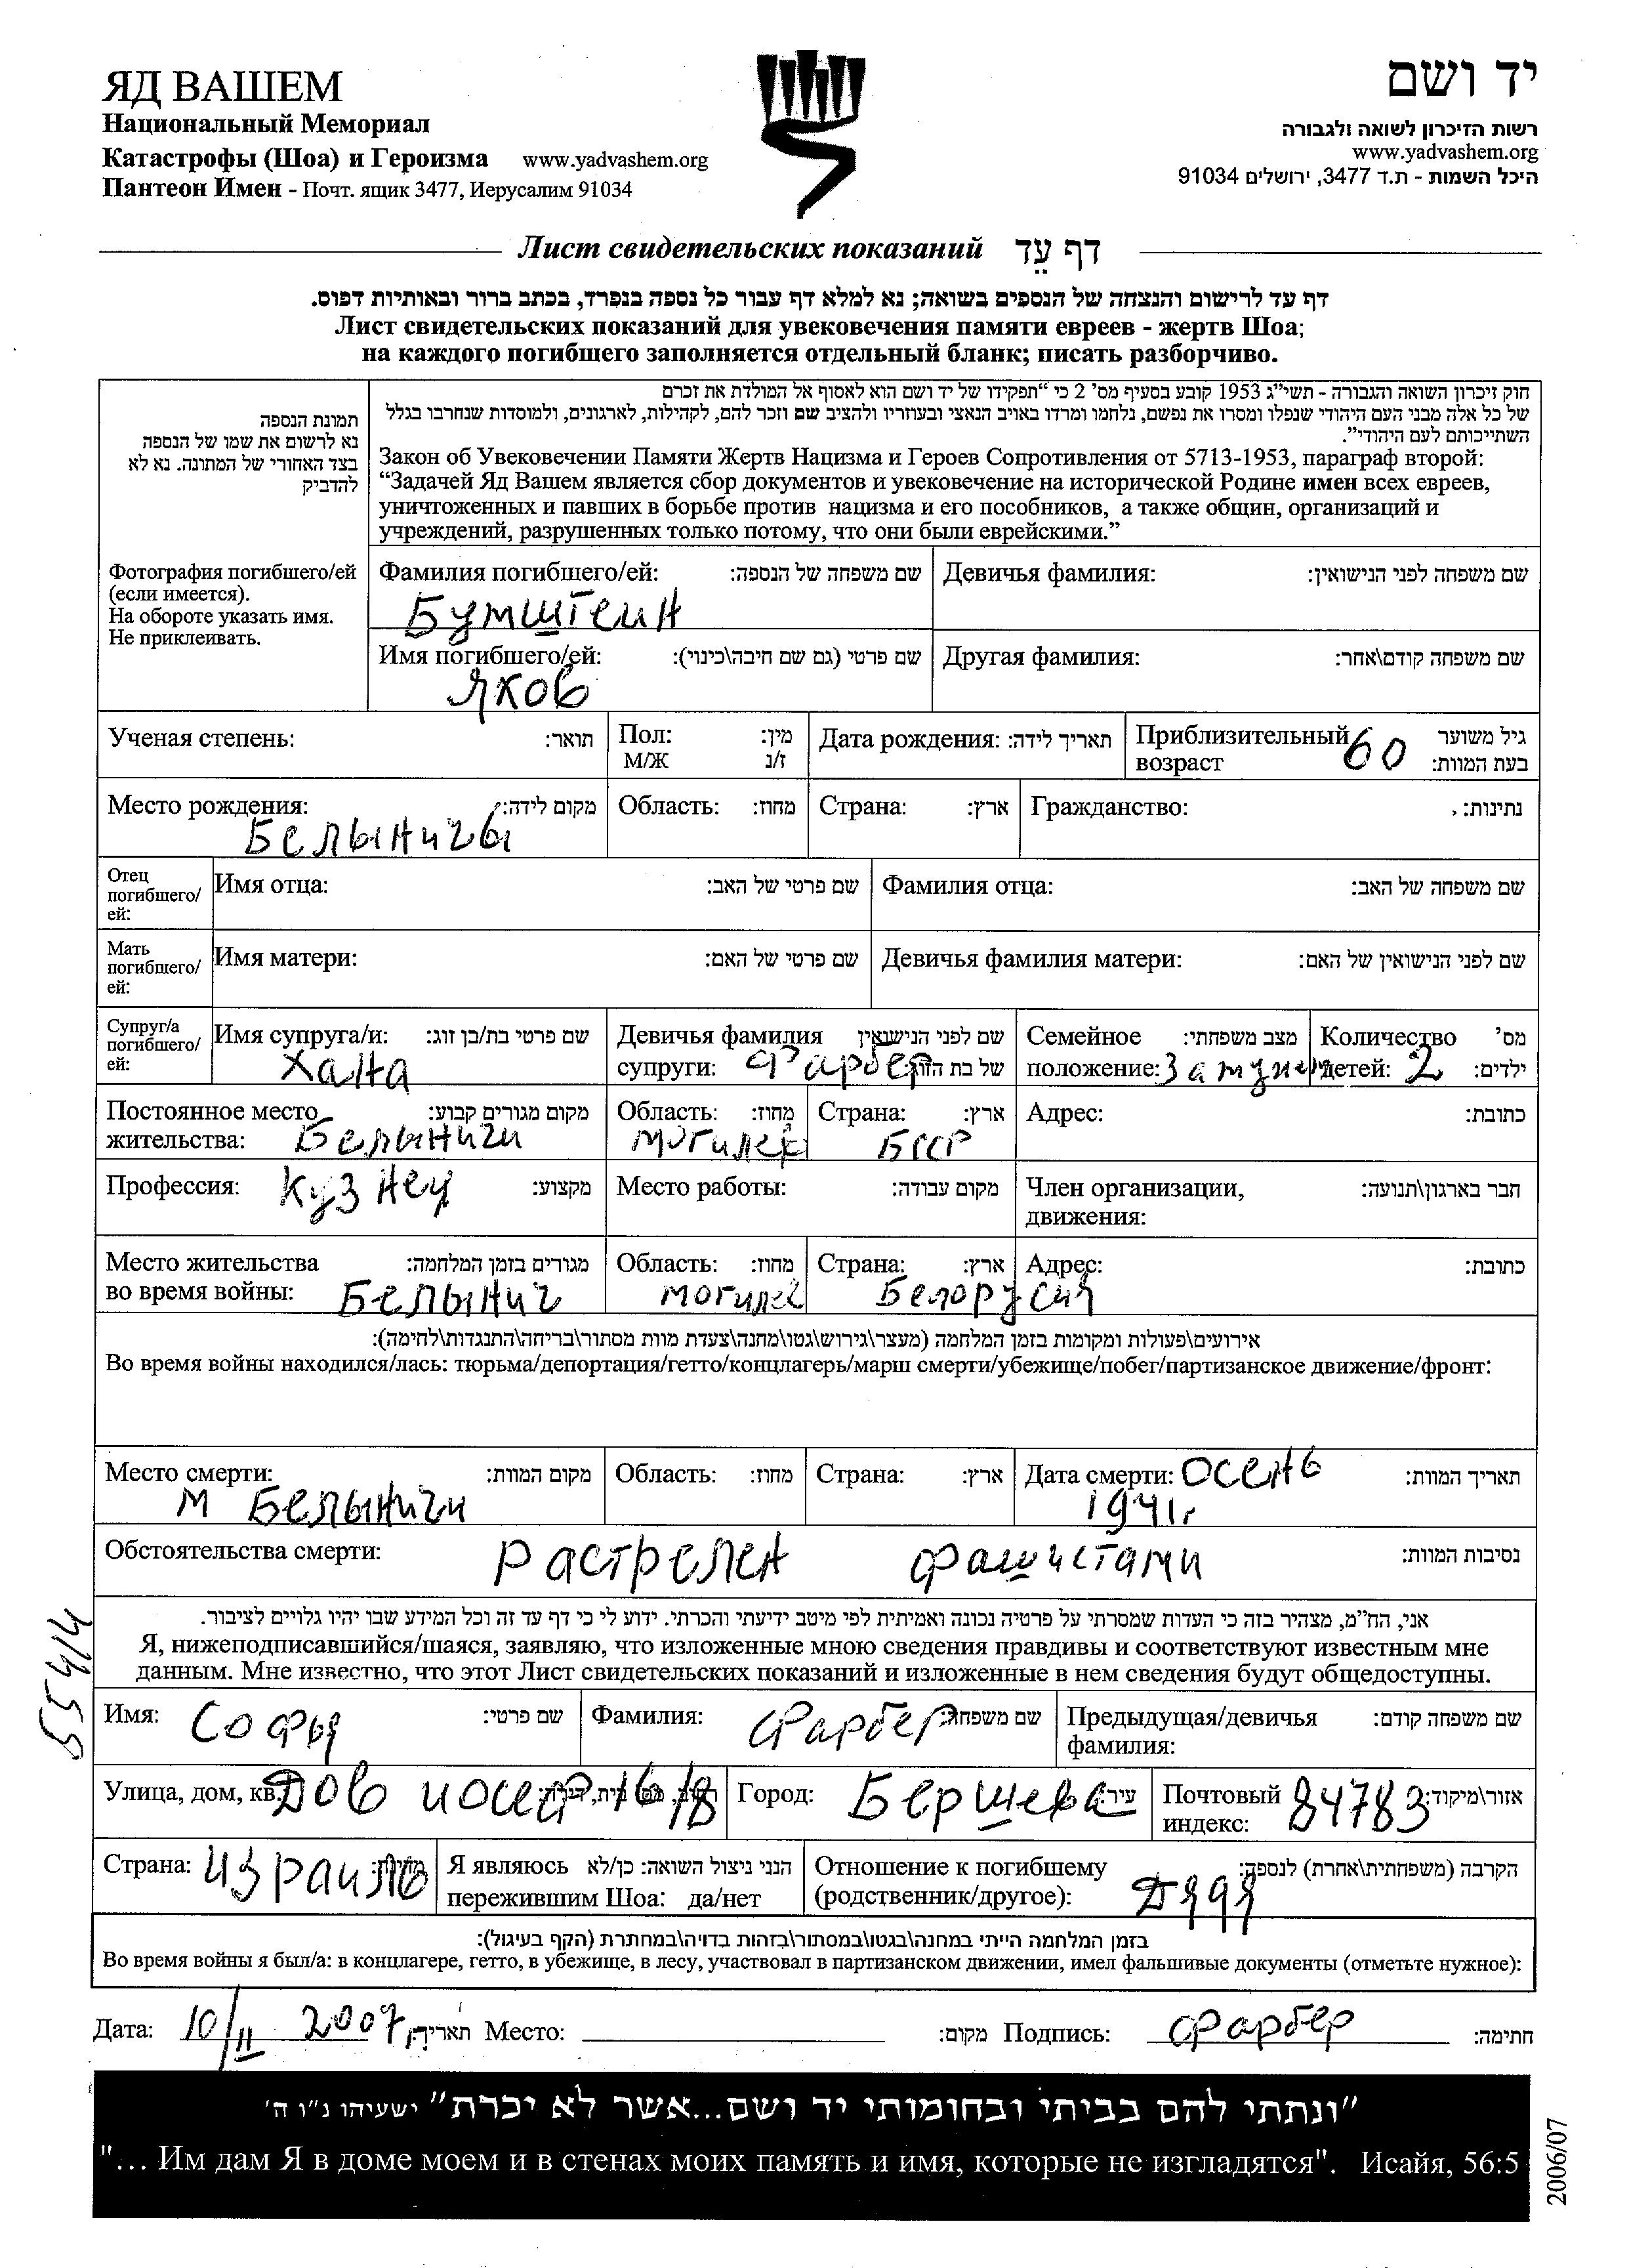 ЯД ВАШЕМ
Национальный Мемориал
Катастрофы (Шоа) и Героизма www.yadvashem.org
Пантеон Имен - Почт. ящик 3477, Иерусалим 91034
יד ושם
רשות הזיכרון לשואה ולגבורה
www.yadvashem.org
היכל השמות - ת.ד 3477, ירושלים 91034
Лист свидетельских показаний דף עֵד
דף עד לרישום והנצחה של הנספים בשואה; נא למלא דף עבור כל נספה בנפרד, בכתב ברור ובאותיות דפוס.
Лист свидетельских показаний для увековечения памяти евреев - жертв Шоа;
на каждого погибшего заполняется отдельный бланк; писать разборчиво.
תמונת הנספה
נא לרשום את שמו של הנספה
בצד האחורי של המתונה. נא לא
להדביק
Фотография погибшего/ей
(если имеется).
На обороте указать имя.
Не приклеивать.
חוק זיכרון השואה והגבורה - תשי"ג 1953 קובע בסעיף מס' 2 כי "תפקידו של יד ושם הוא לאסוף אל המולדת את זכרם
של כל אלה מבני העם היהודי שנפלו ומסרו את נפשם, נלחמו ומרדו באויב הנאצי ובעוזריו ולהציב שם וזכר להם, לקהילות, לארגונים, ולמוסדות שנחרבו בגלל
השתייכותם לעם היהודי".
Закон об Увековечении Памяти Жертв Нацизма и Героев Сопротивления от 5713-1953, параграф второй:
“Задачей Яд Вашем является сбор документов и увековечение на исторической Родине имен всех евреев,
уничтоженных и павших в борьбе против нацизма и его пособников, а также общин, организаций и
учреждений, разрушенных только потому, что они были еврейскими.”
Фамилия погибшего/ей: שם משפחה של הנספה:
Бумштеин
Девичья фамилия: שם משפחה לפני הנישואין:
Имя погибшего/ей: שם פרטי (גם שם חיבה\כינוי):
Яков
Другая фамилия: שם משפחה קודם\אחר:
Ученая степень: תואר:
Пол: מין:
М/Ж ז/נ
Дата рождения: תאריך לידה:
Приблизительный גיל משוער
возраст 60 בעת המוות:
Место рождения: מקום לידה:
Белыничы
Область: מחוז:
Страна: ארץ:
Гражданство: נתינות:
Отец
погибшего/
ей:
Имя отца: שם פרטי של האב:
Фамилия отца: שם משפחה של האב:
Мать
погибшего/
ей:
Имя матери: שם פרטי של האם:
Девичья фамилия матери: שם לפני הנישואין של האם:
Супруг/а
погибшего/
ей:
Имя супруга/и: שם פרטי בת/בן זוג:
Хана
Девичья фамилия שם לפני הנישואין
супруги: Фарбер של בת הזוג:
Семейное מצב משפחתי:
положение:
Количество מס'
детей: 2 ילדים:
Постоянное место מקום מגורים קבוע:
жительства: Белыничи
Область: מחוז:
могилев
Страна: ארץ:
БССР
Адрес: כתובת:
Профессия: Кузнец מקצוע:
Место работы: מקום עבודה:
Член организации, חבר בארגון\תנועה:
движения:
Место жительства מגורים בזמן המלחמה:
во время войны: Белынич
Область: מחוז:
могилев
Страна: ארץ:
Белорусия
Адрес: כתובת:
אירועים\פעולות ומקומות בזמן המלחמה (מעצר\גירוש\גטו\מחנה\צעדת מוות מסתור\בריחה\התנגדות\לחימה):
Во время войны находился/лась: тюрьма/депортация/гетто/концлагерь/марш смерти/убежище/побег/партизанское движение/фронт:
Место смерти: מקום המוות:
м Белыничи
Область: מחוז:
Страна: ארץ:
Дата смерти: осень תאריך המוות:
1941г
Обстоятельства смерти: Растрелен фашистами נסיבות המוות:
אני, הח"מ, מצהיר בזה כי העדות שמסרתי על פרטיה נכונה ואמיתית לפי מיטב ידיעתי והכרתי. ידוע לי כי דף עד זה וכל המידע שבו יהיו גלויים לציבור.
Я, нижеподписавшийся/шаяся, заявляю, что изложенные мною сведения правдивы и соответствуют известным мне
данным. Мне известно, что этот Лист свидетельских показаний и изложенные в нем сведения будут общедоступны.
Имя: Софья שם פרטי:
Фамилия: Фарбер שם משפחה:
Предыдущая/девичья שם משפחה קודם:
фамилия:
Улица, дом, кв. Дов иосеф 16/8
Город: Бершева עיר:
Почтовый 84783 אזור\מיקוד:
индекс:
Страна: Израиль
Я являюсь הנני ניצול השואה: כן/לא
пережившим Шоа: да/нет
Отношение к погибшему הקרבה (משפחתית\אחרת) לנספה:
(родственник/другое): Дядя
בזמן המלחמה הייתי במחנה\בגטו\במסתור\בזהות בדויה\במחתרת (הקף בעיגול):
Во время войны я был/а: в концлагере, гетто, в убежище, в лесу, участвовал в партизанском движении, имел фальшивые документы (отметьте нужное):
Дата: 10/II 2007 תאריך: Место: מקום: Подпись: Фарбер חתימה:
"ונתתי להם בביתי ובחומותי יד ושם...אשר לא יכרת" ישעיהו נ"ו ה'
"... Им дам Я в доме моем и в стенах моих память и имя, которые не изгладятся". Исайя, 56:5
2006/07